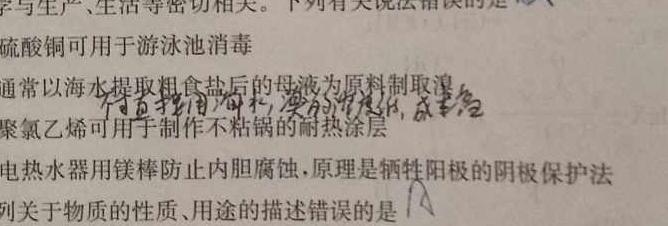 学与生产、生活等密切相关。下列有关说法错误的是
硫酸铜可用于游泳池消毒
通常以海水提取粗食盐后的母液为原料制取溴
直接用海水,溴的浓度低,成本高
聚氯乙烯可用于制作不粘锅的耐热涂层
电热水器用镁棒防止内胆腐蚀,原理是牺牲阳极的阴极保护法
列关于物质的性质、用途的描述错误的是 A